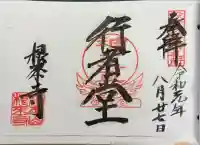 奉拝
令和元年
八月廿七日
行者堂
根来寺